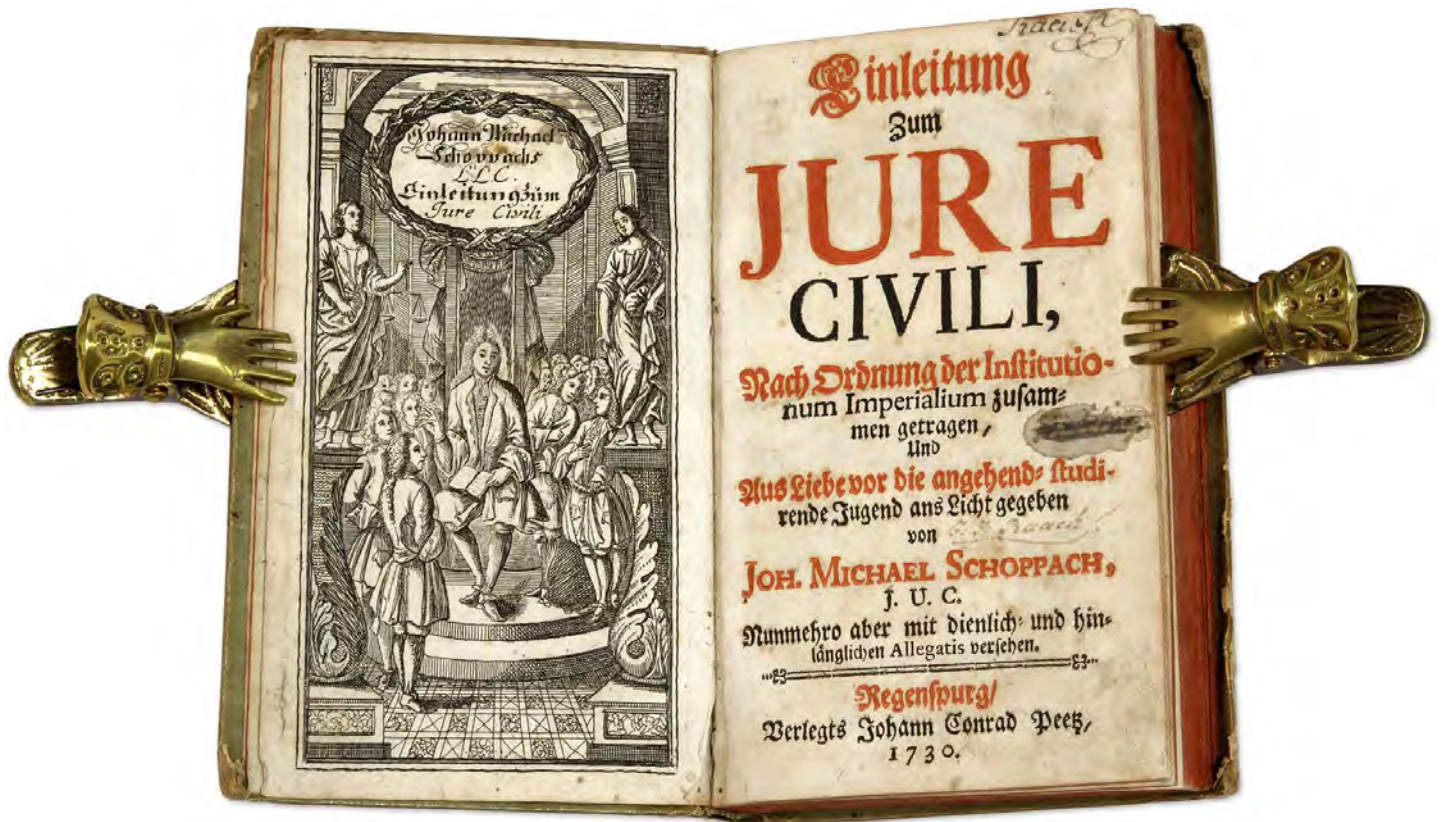 Johann Michael
Schoppachs
L.L.C.
Einleitung zum
Jure Civili
Einleitung
Zum
JURE
CIVILI,
Nach Ordnung der Institutio-
num Imperialium zusam-
men getragen /
Und
Aus Liebe vor die angehend- studi-
rende Jugend ans Licht gegeben
von
JOH. MICHAEL SCHOPPACH,
J. U. C.
Nunmehro aber mit dienlich- und hin-
länglichen Allegatis versehen.
Regenspurg/
Verlegts Johann Conrad Peetz,
1730.